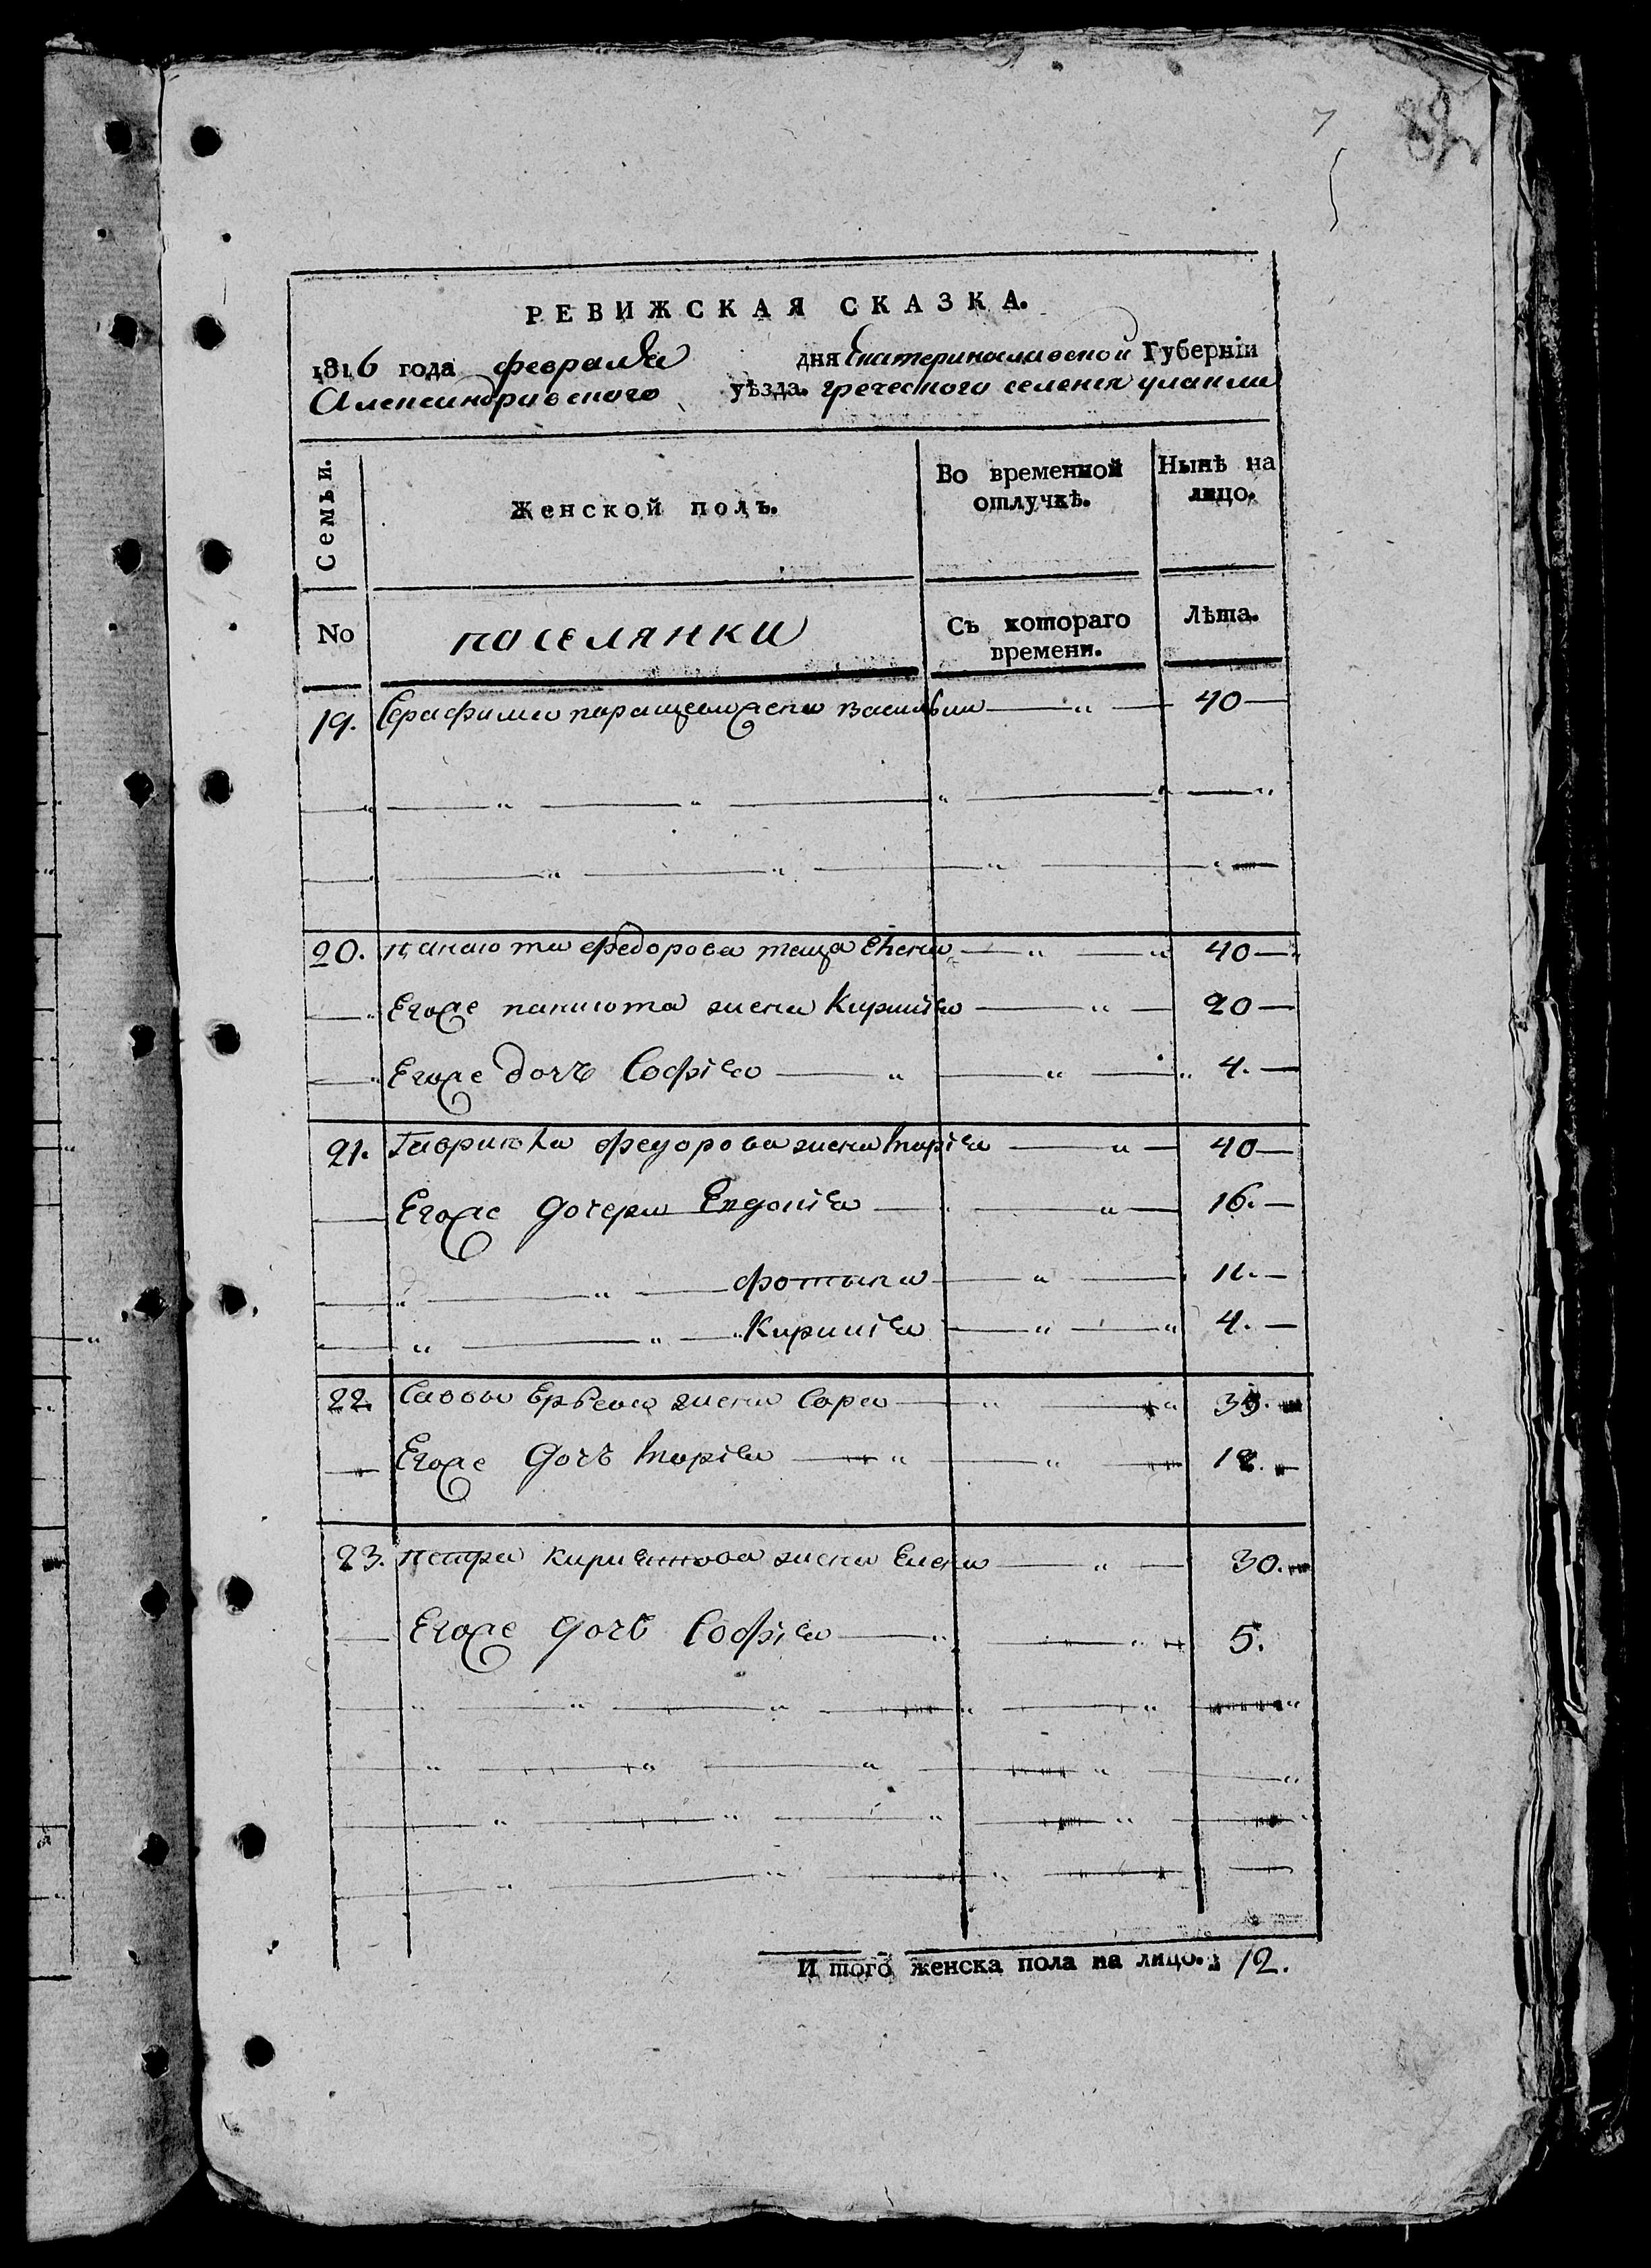 7
РЕВИЖСКАЯ СКАЗКА.
1816 года февраля дня Екатеринославской Губерніи
Александровского уѣзда. греческого селенія улаклы
Семьи. Женской полъ. Во временной отлучкѣ. Нынѣ на лицо.
No поселянки Съ котораго времени. Лѣта.
19. Серафима жена 40
20. панаіота федорова теща Елена 40
Егоже панаіота жена Киріакіа 20
Егоже дочь Софіа 4.
21. Гавриила федорова жена Маріа 40
Егоже дочери Евдокіа 16.
фотина 11.
Киріакіа 4.
22. Саввы жена Сара 35.
Егоже дочь Маріа 12.
23. петра кириакова жена Елена 30.
Егоже дочь Софіа 5.
И того женска пола на лицо. 12.